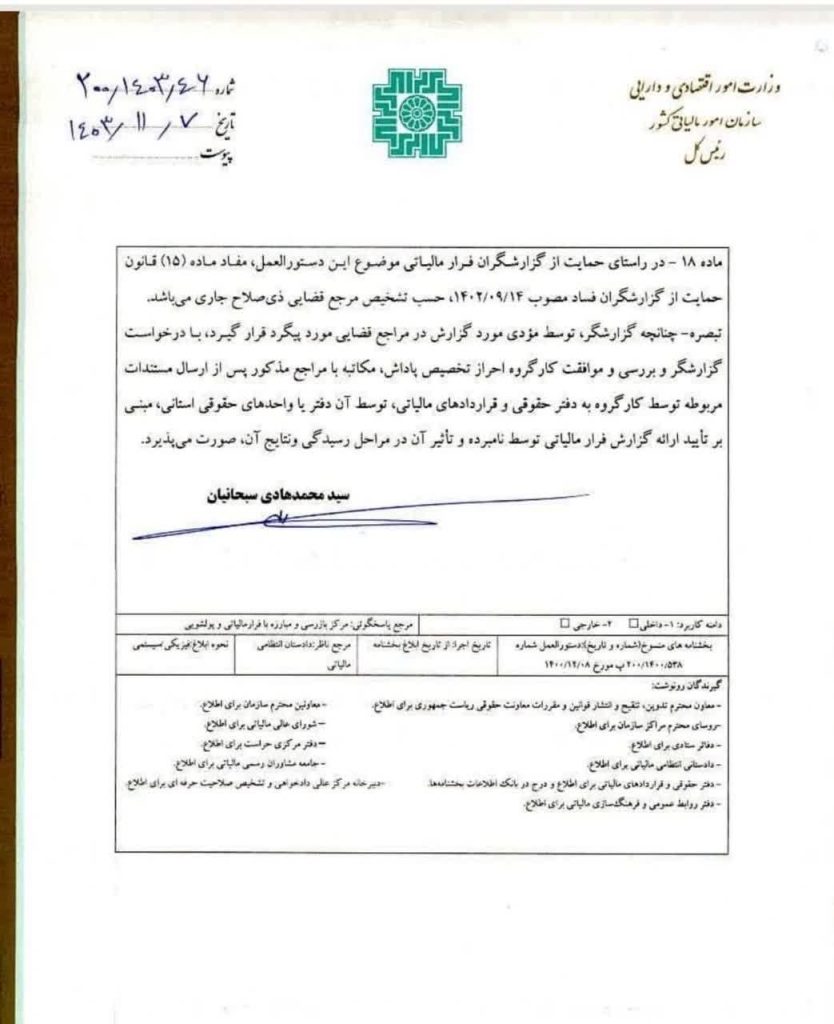 وزارت امور اقتصادی و دارایی
سازمان امور مالیاتی کشور
رئیس کل
شماره ۲۰۰/۱۴۰۳/۴۶
تاریخ ۱۴۰۳/۱۱/۷
پیوست
ماده ۱۸ - در راستای حمایت از گزارشگران فرار مالیاتی موضوع این دستورالعمل، مفاد ماده (۱۵) قانون
حمایت از گزارشگران فساد مصوب ۱۴۰۲/۰۹/۱۴، حسب تشخیص مرجع قضایی ذی‌صلاح جاری می‌باشد.
تبصره- چنانچه گزارشگر، توسط مؤدی مورد گزارش در مراجع قضایی مورد پیگرد قرار گیرد، با درخواست
گزارشگر و بررسی و موافقت کارگروه احراز تخصیص پاداش، مکاتبه با مراجع مذکور پس از ارسال مستندات
مربوطه توسط کارگروه به دفتر حقوقی و قراردادهای مالیاتی، توسط آن دفتر یا واحدهای حقوقی استانی، مبنی
بر تأیید ارائه گزارش فرار مالیاتی توسط نامبرده و تأثیر آن در مراحل رسیدگی ونتایج آن، صورت می‌پذیرد.
سید محمدهادی سبحانیان
دامنه کاربرد: ۱- داخلی ☐ ۲- خارجی ☐
مرجع پاسخگوئی: مرکز بازرسی و مبارزه با فرارمالیاتی و پولشویی
بخشنامه های منسوخ(شماره و تاریخ):دستورالعمل شماره
۲۰۰/۱۴۰۰/۵۳۸پ مورخ ۱۴۰۰/۱۲/۰۸
تاریخ اجرا: از تاریخ ابلاغ بخشنامه
مرجع ناظر:دادستان انتظامی
مالیاتی
نحوه ابلاغ:فیزیکی/سیستمی
گیرندگان رونوشت:
- معاون محترم تدوین، تنقیح و انتشار قوانین و مقررات معاونت حقوقی ریاست جمهوری برای اطلاع.
-روسای محترم مراکز سازمان برای اطلاع.
- دفاتر ستادی برای اطلاع.
- دادستانی انتظامی مالیاتی برای اطلاع.
- دفتر حقوقی و قراردادهای مالیاتی برای اطلاع و درج در بانک اطلاعات بخشنامه‌ها.
- دفتر روابط عمومی و فرهنگ‌سازی مالیاتی برای اطلاع.
-معاونین محترم سازمان برای اطلاع.
-شورای عالی مالیاتی برای اطلاع.
-دفتر مرکزی حراست برای اطلاع.
-جامعه مشاوران رسمی مالیاتی برای اطلاع.
-دبیرخانه مرکز عالی دادخواهی و تشخیص صلاحیت حرفه ای برای اطلاع.